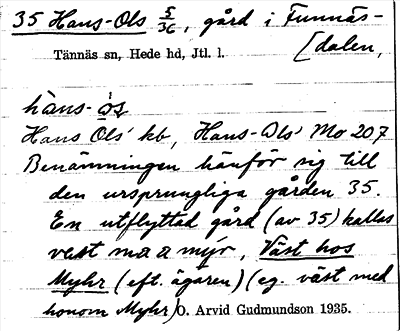 35 Hans-Ols 5/36, gård i Funnäs-
[dalen,
Tännäs sn, Hede hd, Jtl. l.
hàns-ós
Hans Ols' kb, Hans-Ols' Mo 207
Benämningen hänför sig till
den ursprungliga gården 35.
En utflyttad gård (av 35) kallas
väst Väst hos
Myhr (eft. ägaren) (eg. väst med
honom Myhr) O. Arvid Gudmundson 1935.